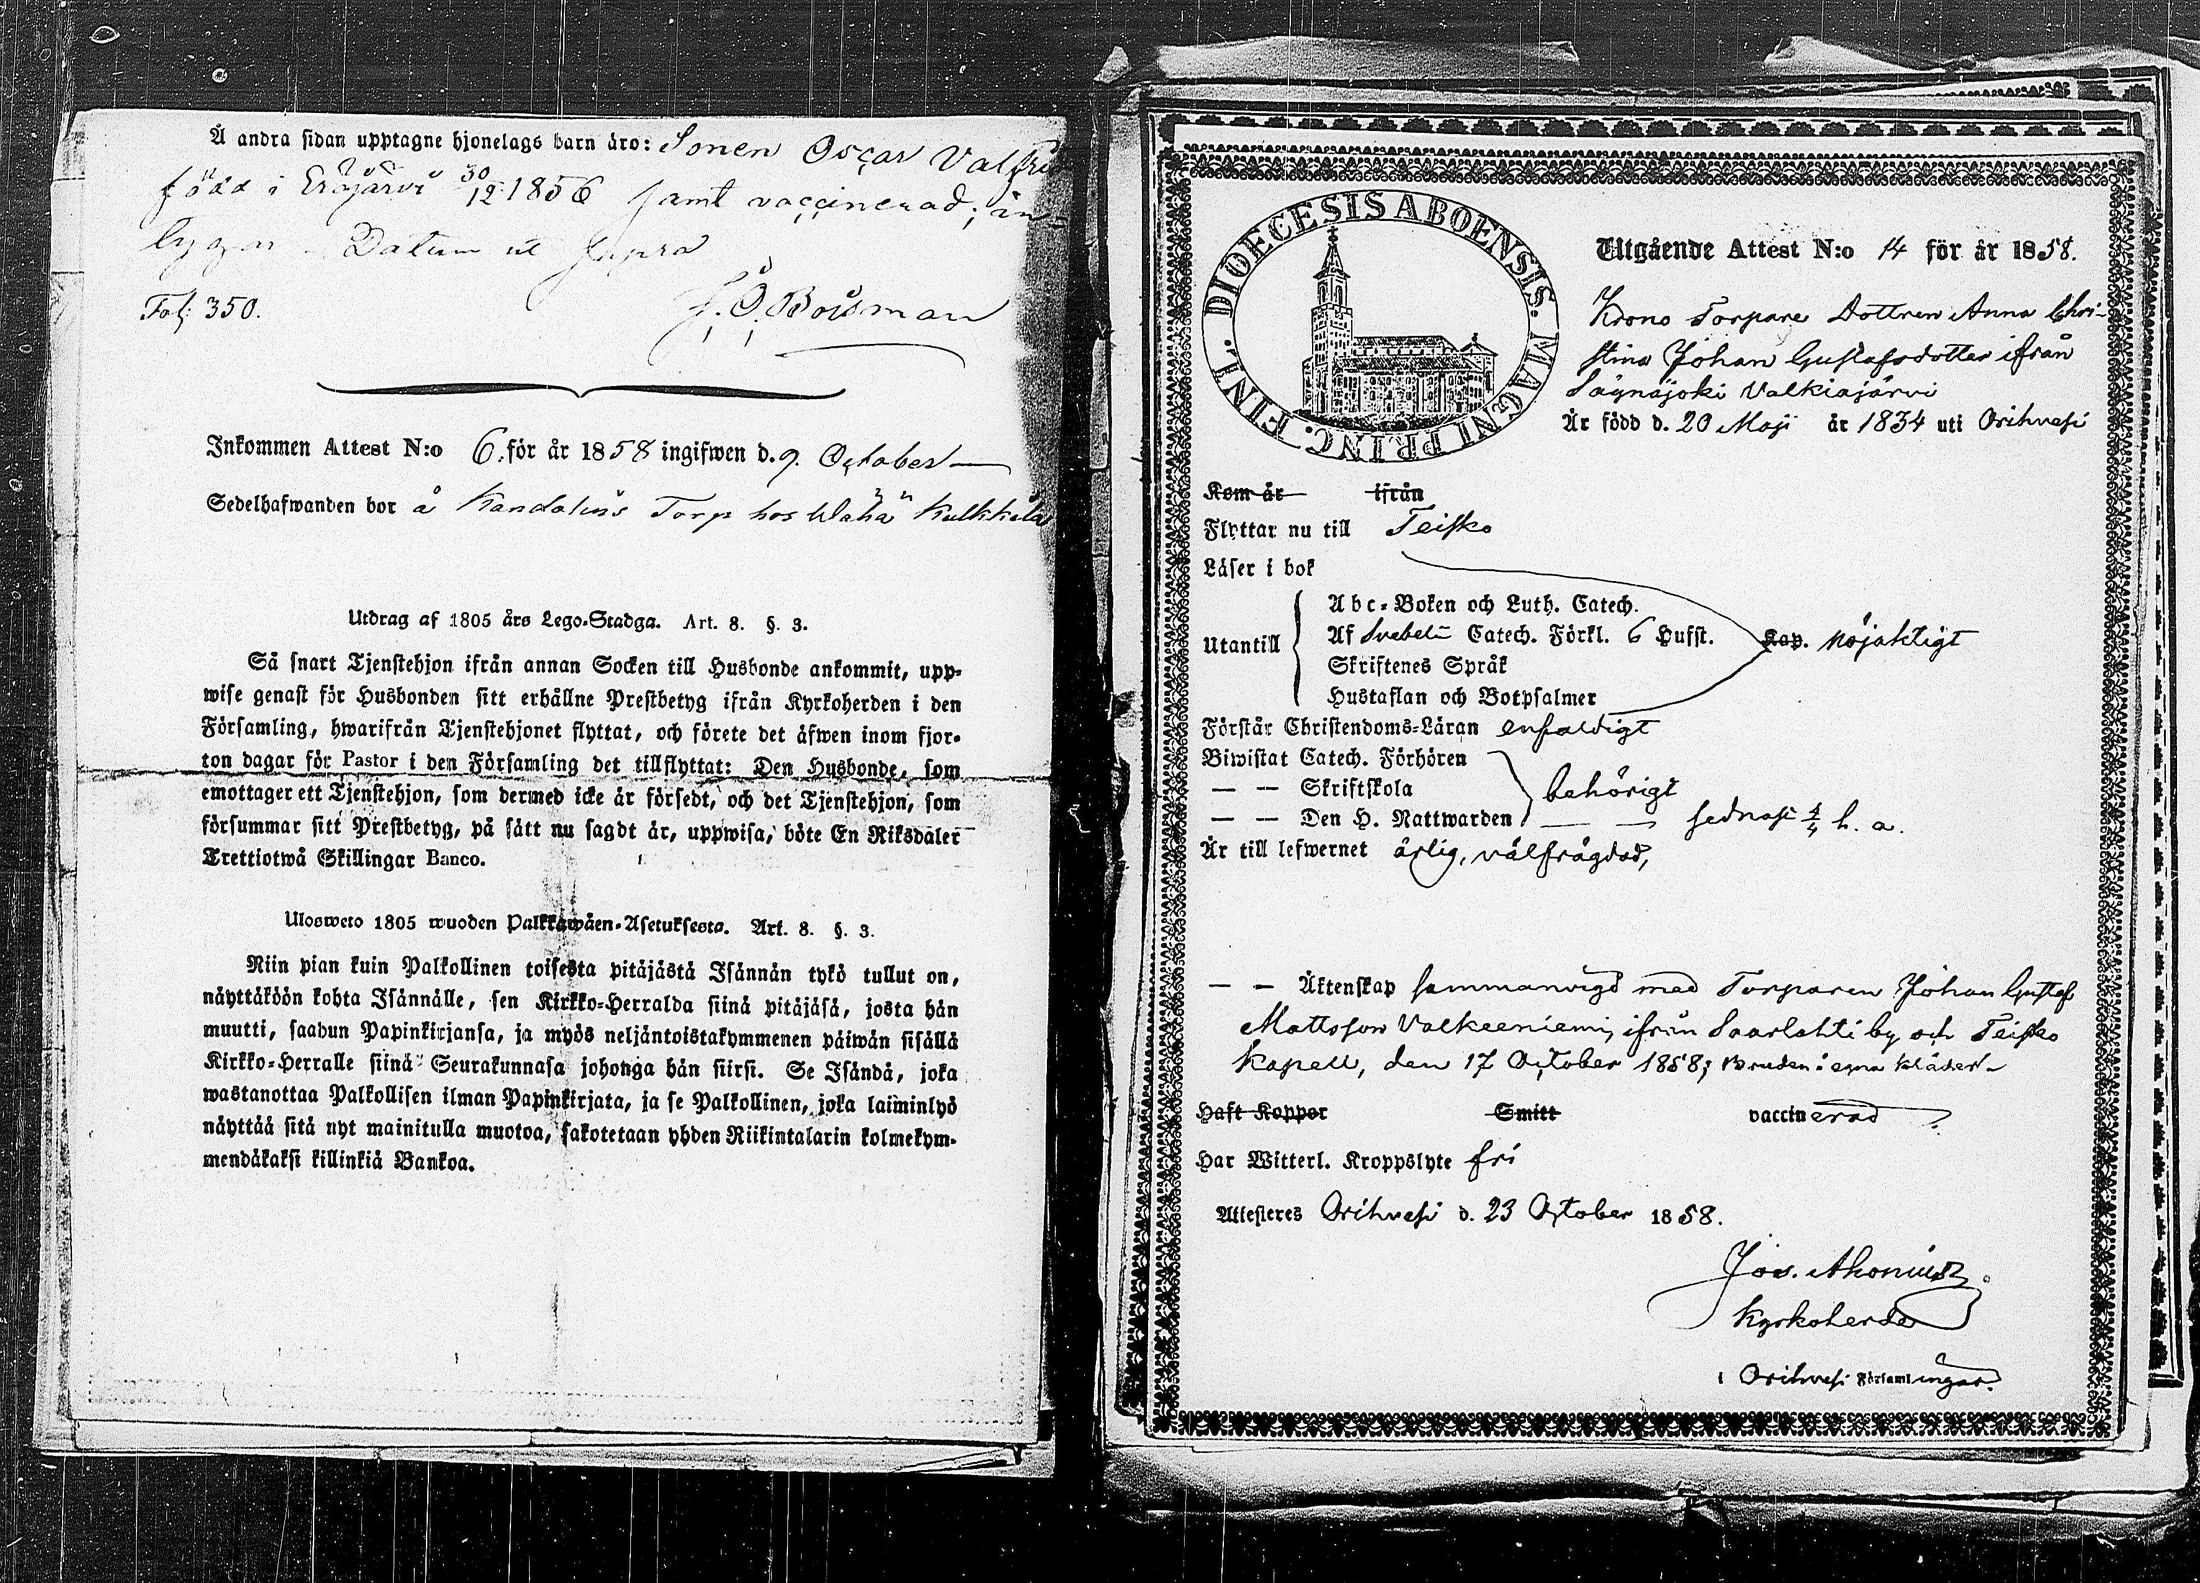 Å andra sidan upptagne hjonelags barn äro: Sonen Oscar Valfrid
född i Eräjärvi 30/12 1856 samt vaccinerad;
Datum ut supra
Fol: 350.
Inkommen Attest N:o 6. för år 1858 ingifwen d. 9. October
Sedelhafwanden bor å Kandolins Torp hos Wähä Kulkkila
Utdrag af 1805 års Lego-Stadga. Art. 8. §. 3.
Så snart Tjenstehjon ifrån annan Socken till Husbonde ankommit, upp-
wise genast för Husbonden sitt erhållne Prestbetyg ifrån Kyrkoherden i den
Församling, hwarifrån Tjenstehjonet flyttat, och förete det äfwen inom fjor-
ton dagar för Pastor i den Församling det tillflyttat: Den Husbonde, som
emottager ett Tjenstehjon, som dermed icke är försedt, och det Tjenstehjon, som
försummar sitt Prestbetyg, på sätt nu sagdt är, uppwisa, böte En Riksdaler
Trettiotwå Skillingar Banco.
Ulosweto 1805 wuoden Palkkawäen-Asetuksesta. Art. 8. §. 3.
Niin pian kuin Palkollinen toisesta pitäjästä Isännän tykö tullut on,
näyttäköön kohta Isännälle, sen Kirkko-Herralda siinä pitäjäsä, josta hän
muutti, saadun Papinkirjansa, ja myös neljäntoistakymmenen päiwän sisällä
Kirkko-Herralle siinä Seurakunnasa johonga hän siirsi. Se Isändä, joka
wastanottaa Palkollisen ilman Papinkirjata, ja se Palkollinen, joka laiminlyö
näyttää sitä nyt mainitulla muotoa, sakotetaan yhden Riikintalarin kolmekym-
mendäkaksi killinkiä Bankoa.
DIOECESIS ABOENSIS. MAGNI PRINC. FINL.
Utgående Attest N:o 14 för år 1858.
Krono Torpare Dottren Anna Chri-
stina Johan Gustafsdotter ifrån
Säynäjoki Valkiajärvi
Är född d. 20 Maji år 1834 uti Orihvesi
Kom år ifrån
Flyttar nu till Teisko
Läser i bok
Utantill
Abc-Boken och Luth. Catech.
Af Svebelii Catech. Förkl. 6 Hufst. Kap. nöjaktigt
Skriftenes Språk
Hustaflan och Botpsalmer
Förstår Christendoms-Läran enfaldigt
Biwistat Catech. Förhören
— — Skriftskola behörigt
— — Den H. Nattwarden — — sednast 4/4 h. a.
Är till lefwernet ärlig, välfrägdad,
— — Äktenskap sammanvigd med Torparen Johan Gustaf
Mattsson Valkeeniemi, ifrån Saarlahti by och Teisko
Kapell, den 17 October 1858; Bruden i egna kläder
Haft Koppor Smitt vaccinerad
Har Witterl. Kroppslyte fri
Attesteres Orihvesi d. 23 October 1858.
Kyrkoherde
i Orihvesi Församlingar.